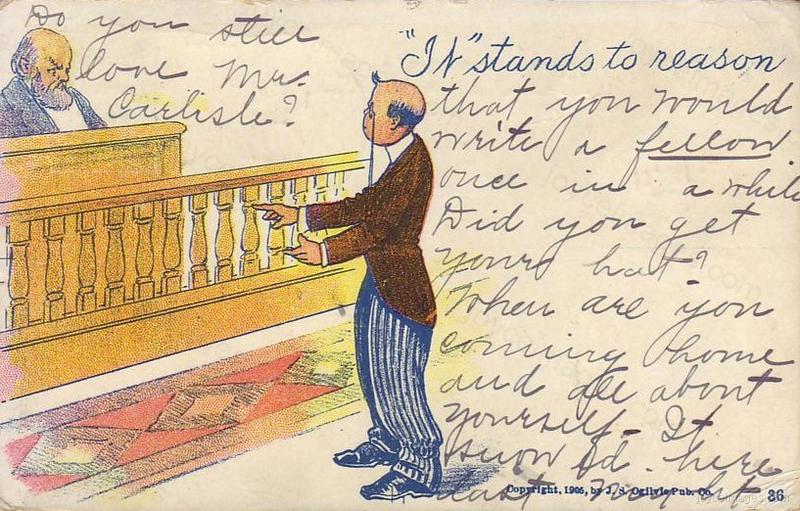 Do you still
love Mr.
Carlisle?
"It" stands to reason
that you would
write a fellow
once in a while
Did you get
yours hat?
When are you
coming home
and all about
yourself. It
snowed here
last night
Copyright, 1905, by J. S. Ogilvie Pub. Co.
36